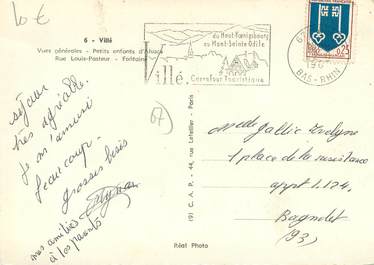 10 €
6 - Villé
Vues générales - Petits enfants d'Alsace
Rue Louis-Pasteur - Fontaine
du Haut-Kœnigsbourg
au Mont-Sainte Odile
Villé
Carrefour Touristique
67
BAS-RHIN
REPUBLIQUE FRANCAISE
0,25
séjour
très agréable.
Je m'amuse
beaucoup.
grosses bises
mes amitiés
à tes parents
67
(91) C. A. P. - 44, rue Letellier - Paris
Réal Photo
Gallic Evelyne
1 place de la résistance
appt 1.124.
Bagnolet
(93)